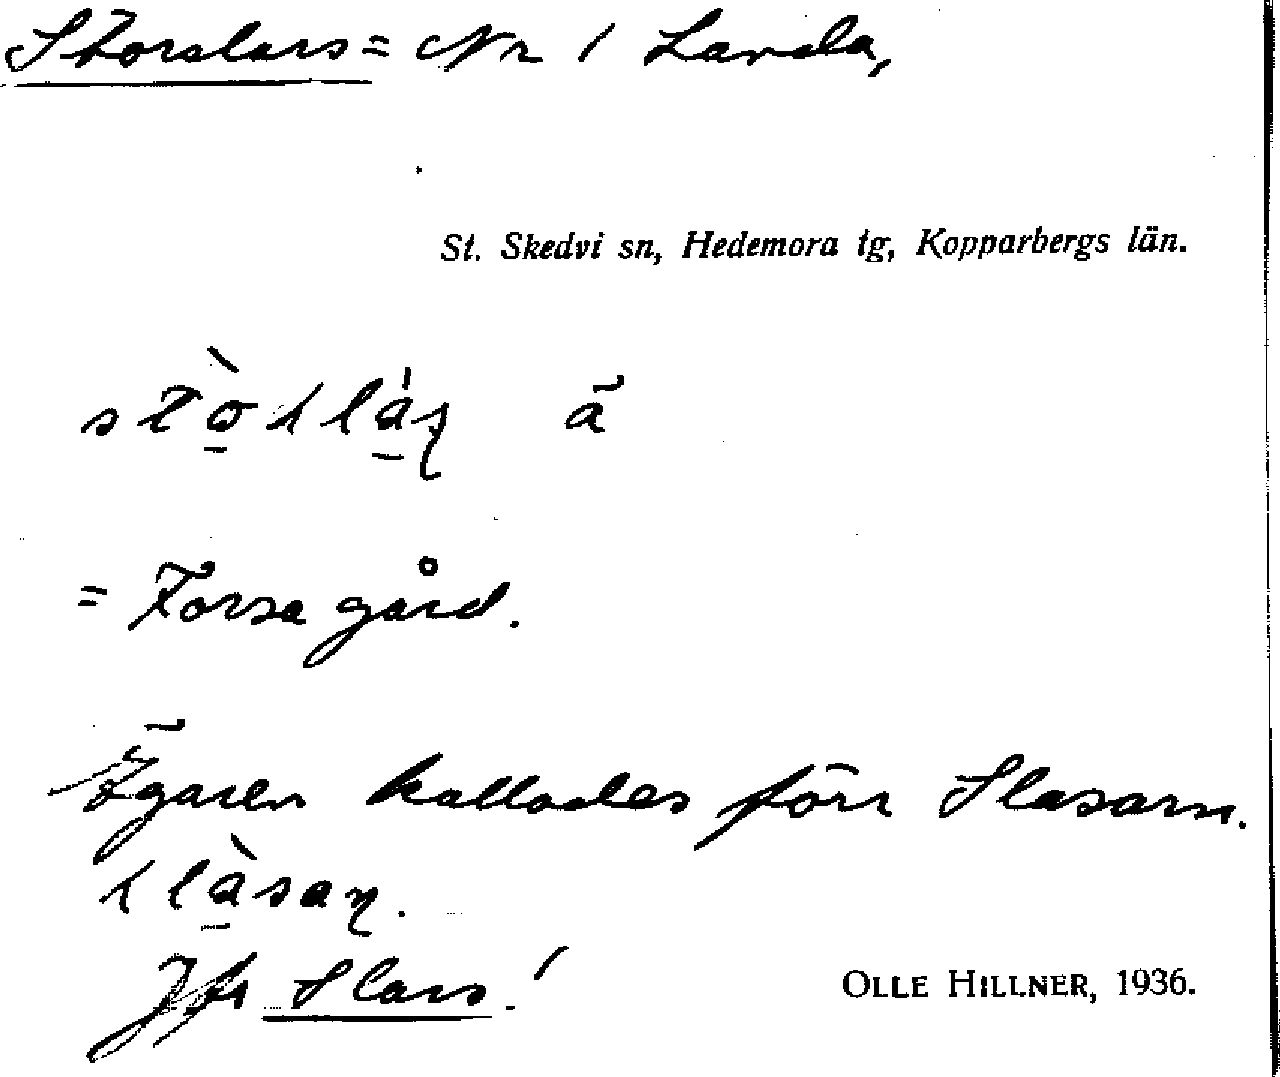 Storslars = Nr 1 Landa,
St. Skedvi sn, Hedemora tg, Kopparbergs län.
ā
= Forsa gård.
Ägaren kallades förr Slasarn.
Jfr Slars!
OLLE HILLNER, 1936.